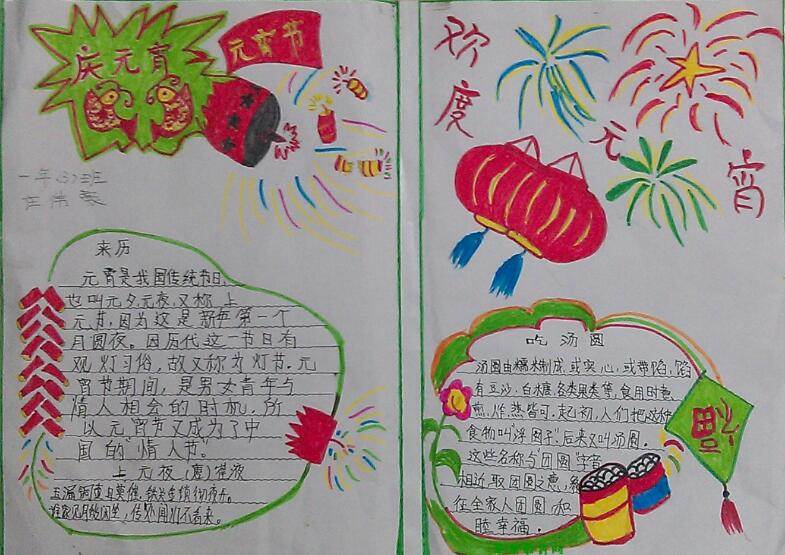 庆元宵
元宵节
一年(3)班
来历
元宵是我国传统节日,
也叫元夕、元夜,又称上
元节,因为这是新年第一个
月圆夜。因历代这一节日有
观灯习俗,故又称为灯节。元
宵节期间,是男女青年与
情人相会的时机,所
以元宵节又成为了中
国的“情人节”。
上元夜(唐)崔液
玉漏铜壶且莫催,铁关金锁彻夜开。
谁家见月能闲坐,何处闻灯不看来。
欢度
元
宵
吃汤圆
汤圆由糯米制成,或实心,或带馅。馅
有豆沙、白糖、各类果类等,食用时煮、
煎、炸、蒸皆可。起初,人们把这种
食物叫“浮圆子”后来又叫汤圆。
这些名称与“团圆”字音
相近,取团圆之意,
在全家人团圆,和
睦幸福。
福